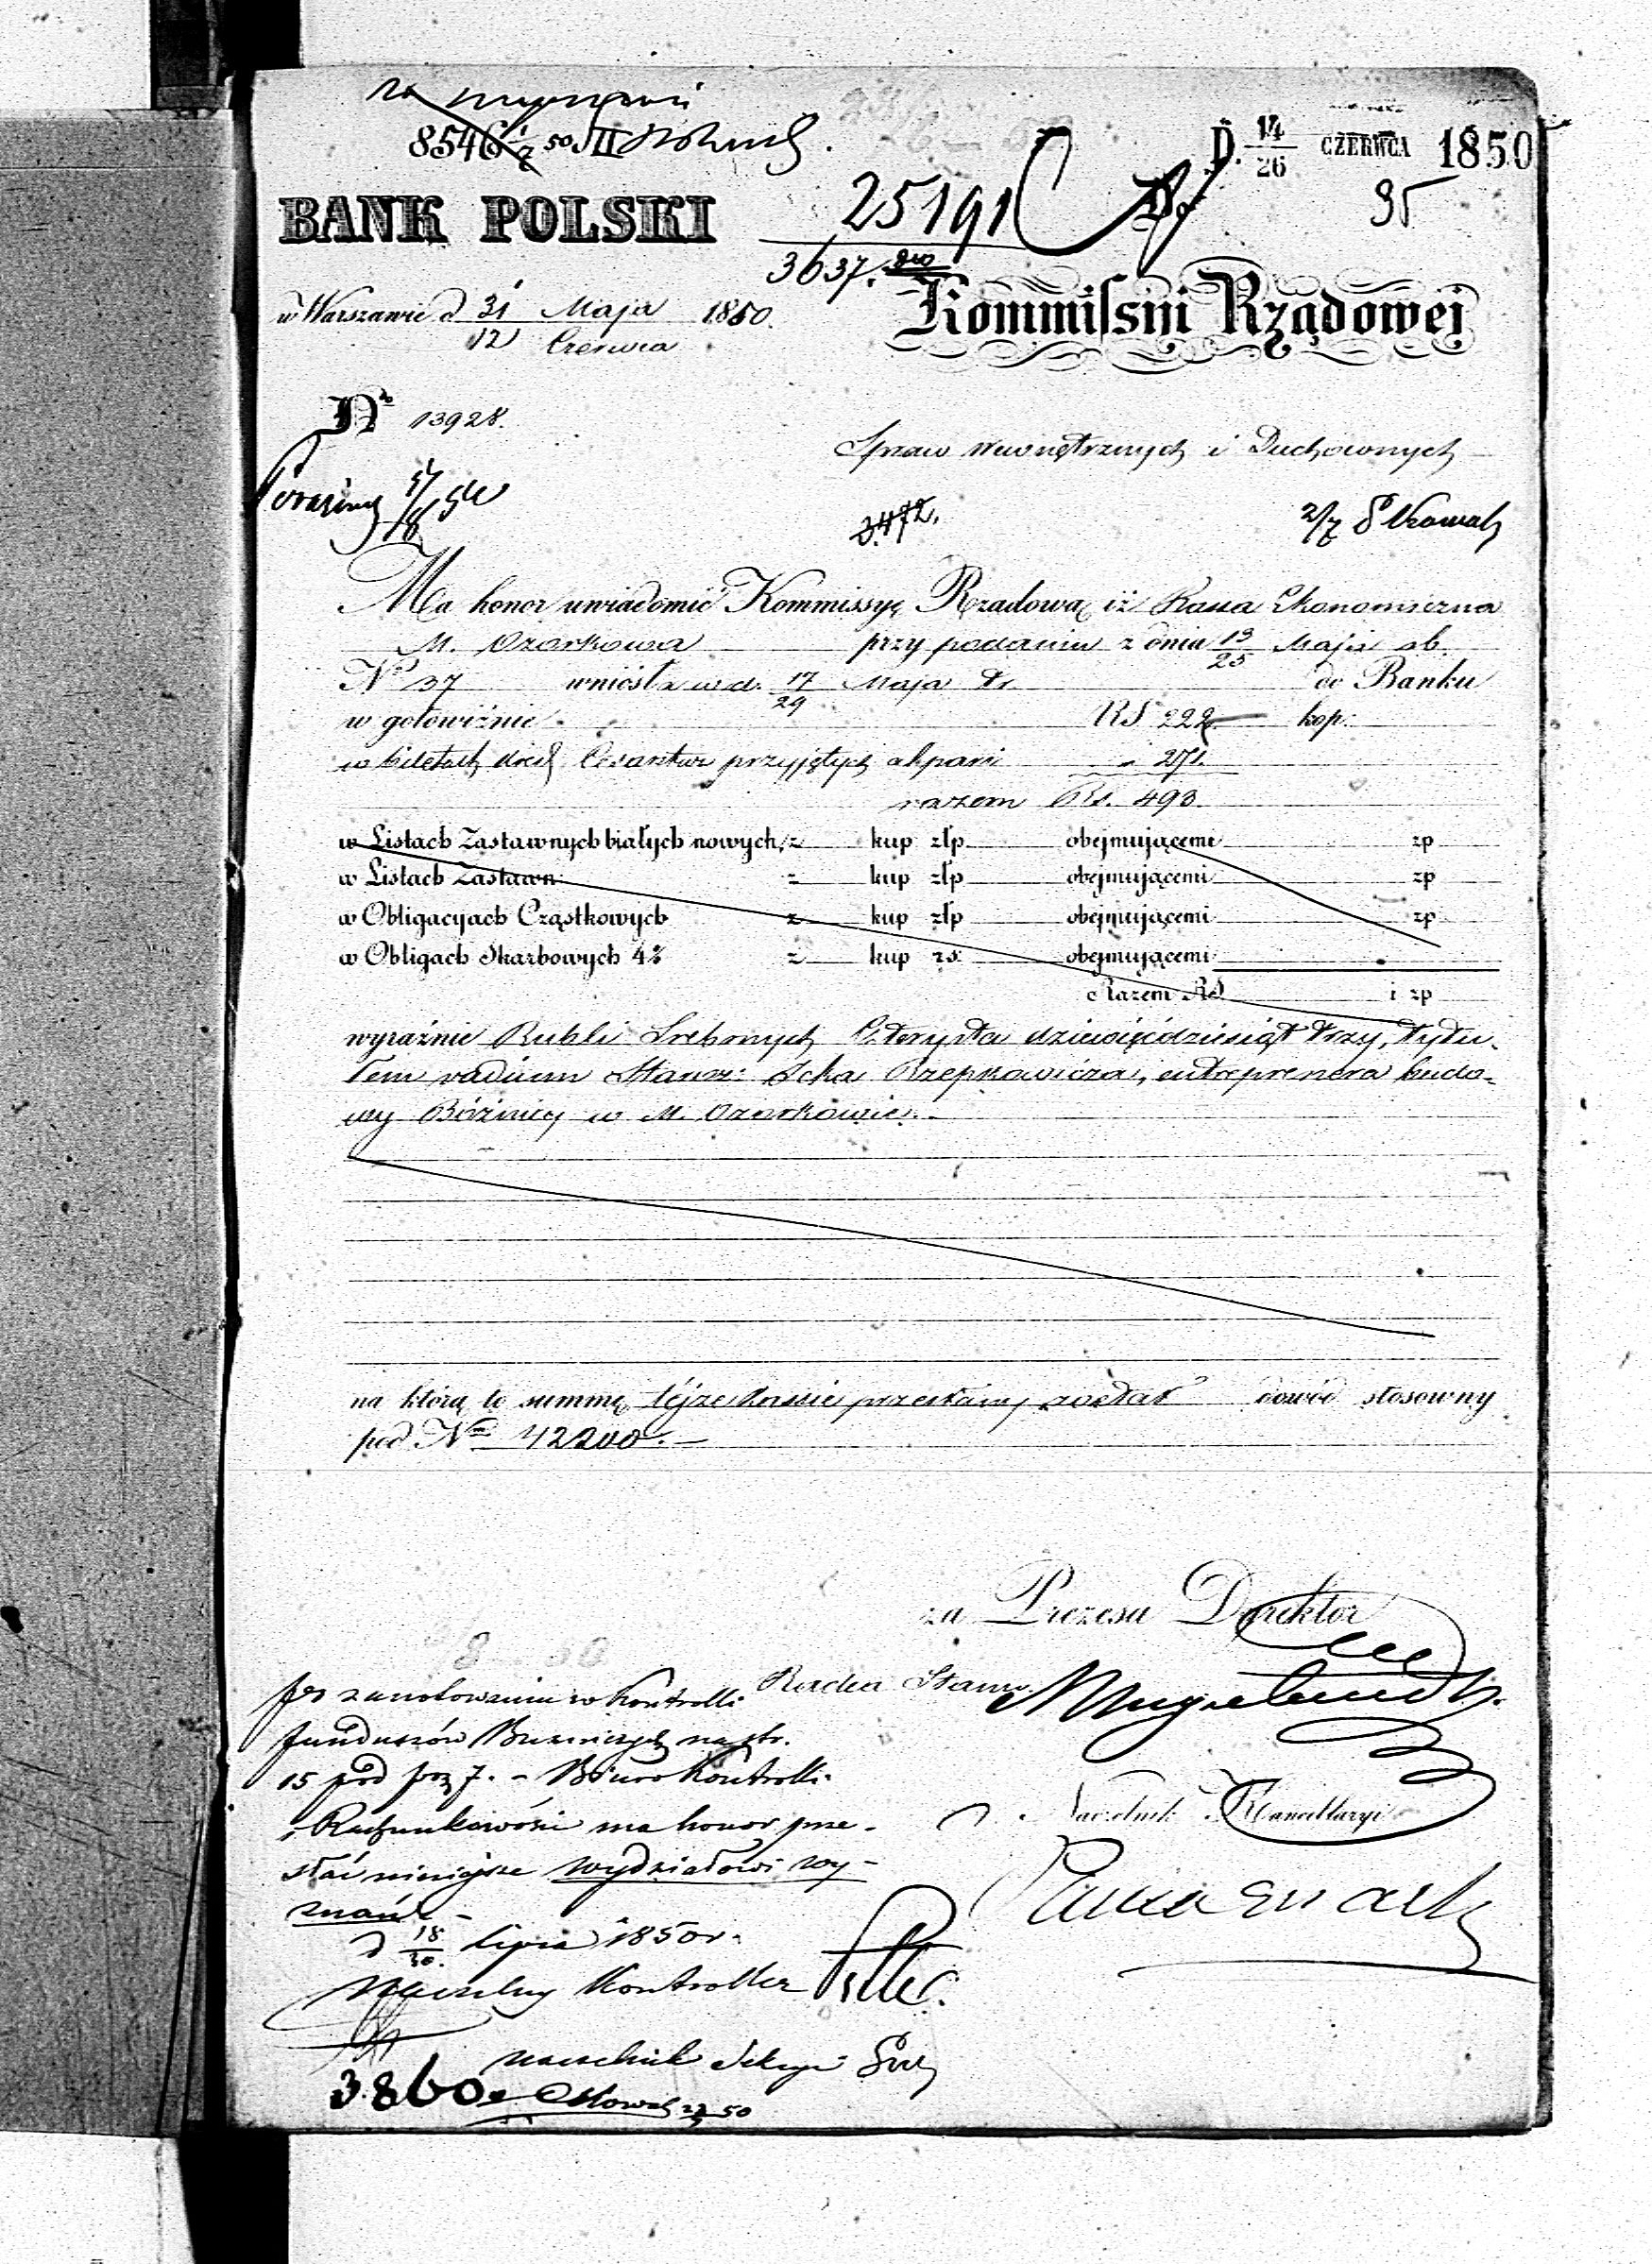 8546 50 II
D. 14/26 CZERWCA 1850
25191
95
BANK POLSKI
3637.
w Warszawie d 31 Maja 1850.
12 Czerwca
Kommissyi Rządowej
No 13928.
Spraw Wewnętrznych i Duchownych
3472.
Ma honor uwiadomić Kommissyę Rządową iż Kassa Ekonomiczna
M. Ozorkowa przy podaniu z dnia 13/25 Maja rb.
No 37 wniosła w d. 17/29 Maja tr. do Banku
w gotowiźnie RS 222 kop:
w biletach kred Cesarstwa przyjętych alpari " 271.
razem Rs. 493.
w Listach Zastawnych białych nowych, z kup złp obejmującemi zp
w Listach Zastawn: z kup złp obejmującemi zp
w Obligacyach Cząstkowych z kup złp obejmującemi zp
w Obligach Skarbowych 4% z kup rs: obejmującemi
Razem RS i zp
wyraźnie Rubli Srebrnych Czterysta dziewięćdziesiąt trzy, tytu-
łem vadium Starz: Icka Rzepkowicza, entreprenera budo-
wy Bóźnicy w M. Ozorkowie.
na którą to summę tejże Kassie przesłany został dowód stosowny
pod Nm 42200.
za Prezesa Dyrektor
Radca Stanu
po zanotowaniu w Kontrolli
funduszów Bużniczych na str.
15 pod poz 7. - Biuro Kontrolli
i Rachunkowości ma honor prze-
słać niniejsze Wydziałowi Wy-
znań -
d 18/30 Lipca 1850 r.
Naczelnik Kancellaryi
Naczelny Kontroller
Naczelnik Sekcyi
3860.
50